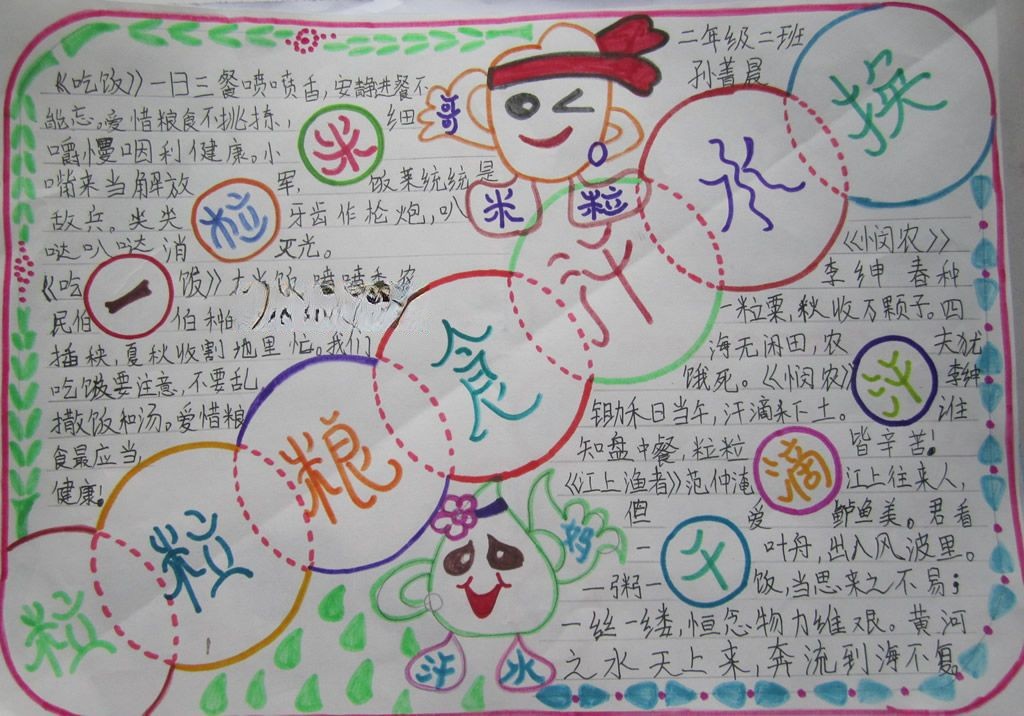 二年级二班
孙菁晨
换
水
汗
食
粮
粒
粒
《吃饭》一日三餐喷喷香，安静进餐不
能忘。爱惜粮食不挑拣， 细
嚼慢咽利健康。小
嘴来当解放 军， 饭菜统统是
敌兵。尖尖 牙齿作抢炮，叭
哒叭哒消 灭光。
米
粒
一
《吃 饭》大米饭 喷喷香 农
民伯 伯种
插秧，夏秋收割地里忙。我们
吃饭要注意，不要乱
撒饭和汤。爱惜粮
食最应当，
健康！
哥
米
粒
妈
汗
水
《悯农》
李绅 春种
一粒粟，秋收万颗子。四
海无闲田，农 夫犹
饿死。《悯农》 李绅
锄禾日当午，汗滴禾下土。 谁
知盘中餐，粒粒 皆辛苦！
《江上渔者》范仲淹 江上往来人，
但 爱 鲈鱼美。君看
一 叶舟，出入风波里。
一粥一 饭，当思来之不易；
一丝一缕，恒念物力维艰。黄河
之水天上来，奔流到海不复
汗
滴